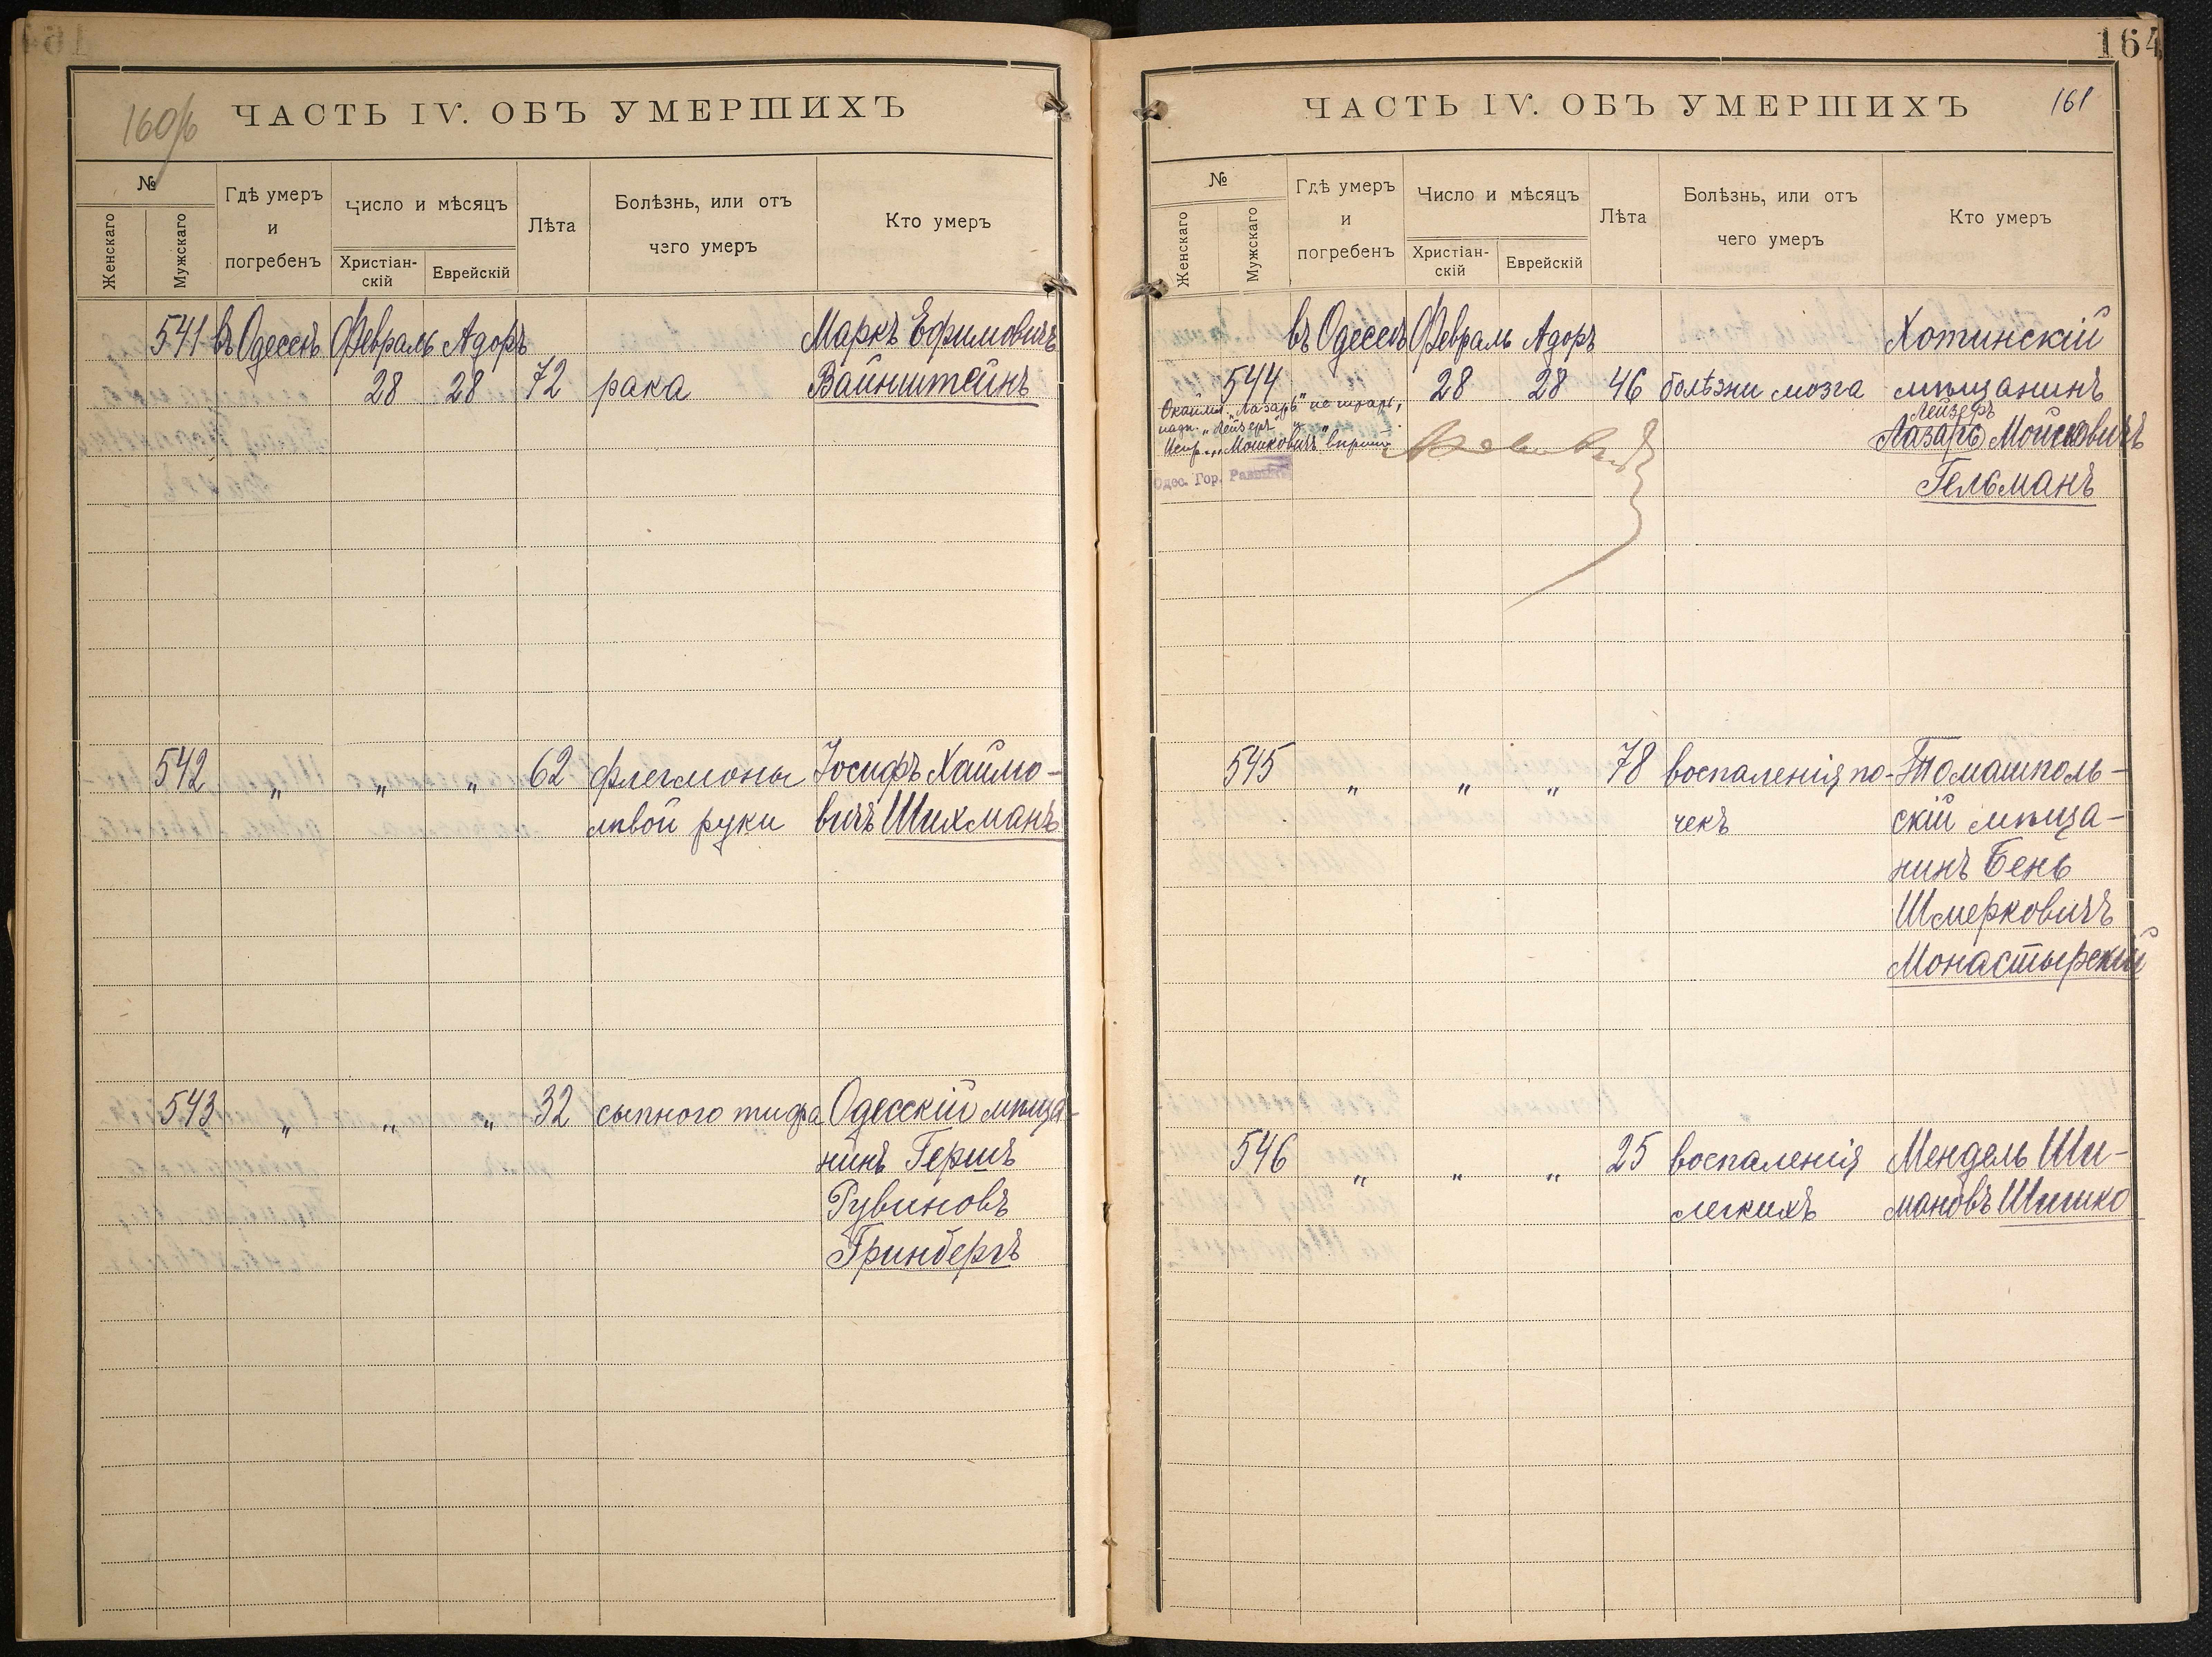 160/б ЧАСТЬ IV. ОБЪ УМЕРШИХЪ
№
Женскаго
Мужскаго
Гдѣ умеръ
и
погребенъ
Число и мѣсяцъ
Христіан-
скій
Еврейскій
Лѣта
Болѣзнь, или отъ
чего умеръ
Кто умеръ
541 въ Одессѣ Февраль Адоръ Маркъ Ефимовичъ
28 28 72 рака Вайнштейнъ
542 " " " 62 флегмоны Іосифъ Хаимо-
лѣвой руки вичъ Шихманъ
543 " " " 32 сыпного тифа Одесскій мѣща-
нинъ Гершъ
Рувиновъ
Гринбергъ
164
ЧАСТЬ IV. ОБЪ УМЕРШИХЪ 161
№
Женскаго
Мужскаго
Гдѣ умеръ
и
погребенъ
Число и мѣсяцъ
Христіан-
скій
Еврейскій
Лѣта
Болѣзнь, или отъ
чего умеръ
Кто умеръ
въ Одессѣ Февраль Адоръ Хотинскій
544 28 28 46 болѣзни мозга мѣщанинъ
Лейзеръ
Лазарь Мошковичъ
Гельманъ
"Лазарь" не
надп. "Лейзеръ" и
Испр. "Мошковичъ"
Одес. Гор. Раввинъ
545 " " " 78 воспаленія по- Томашполь-
чекъ скій мѣща-
нинъ Бень
Шмерковичъ
Монастырскій
546 " " " 25 воспаленія Мендель Ши-
легкихъ мановъ Шишко